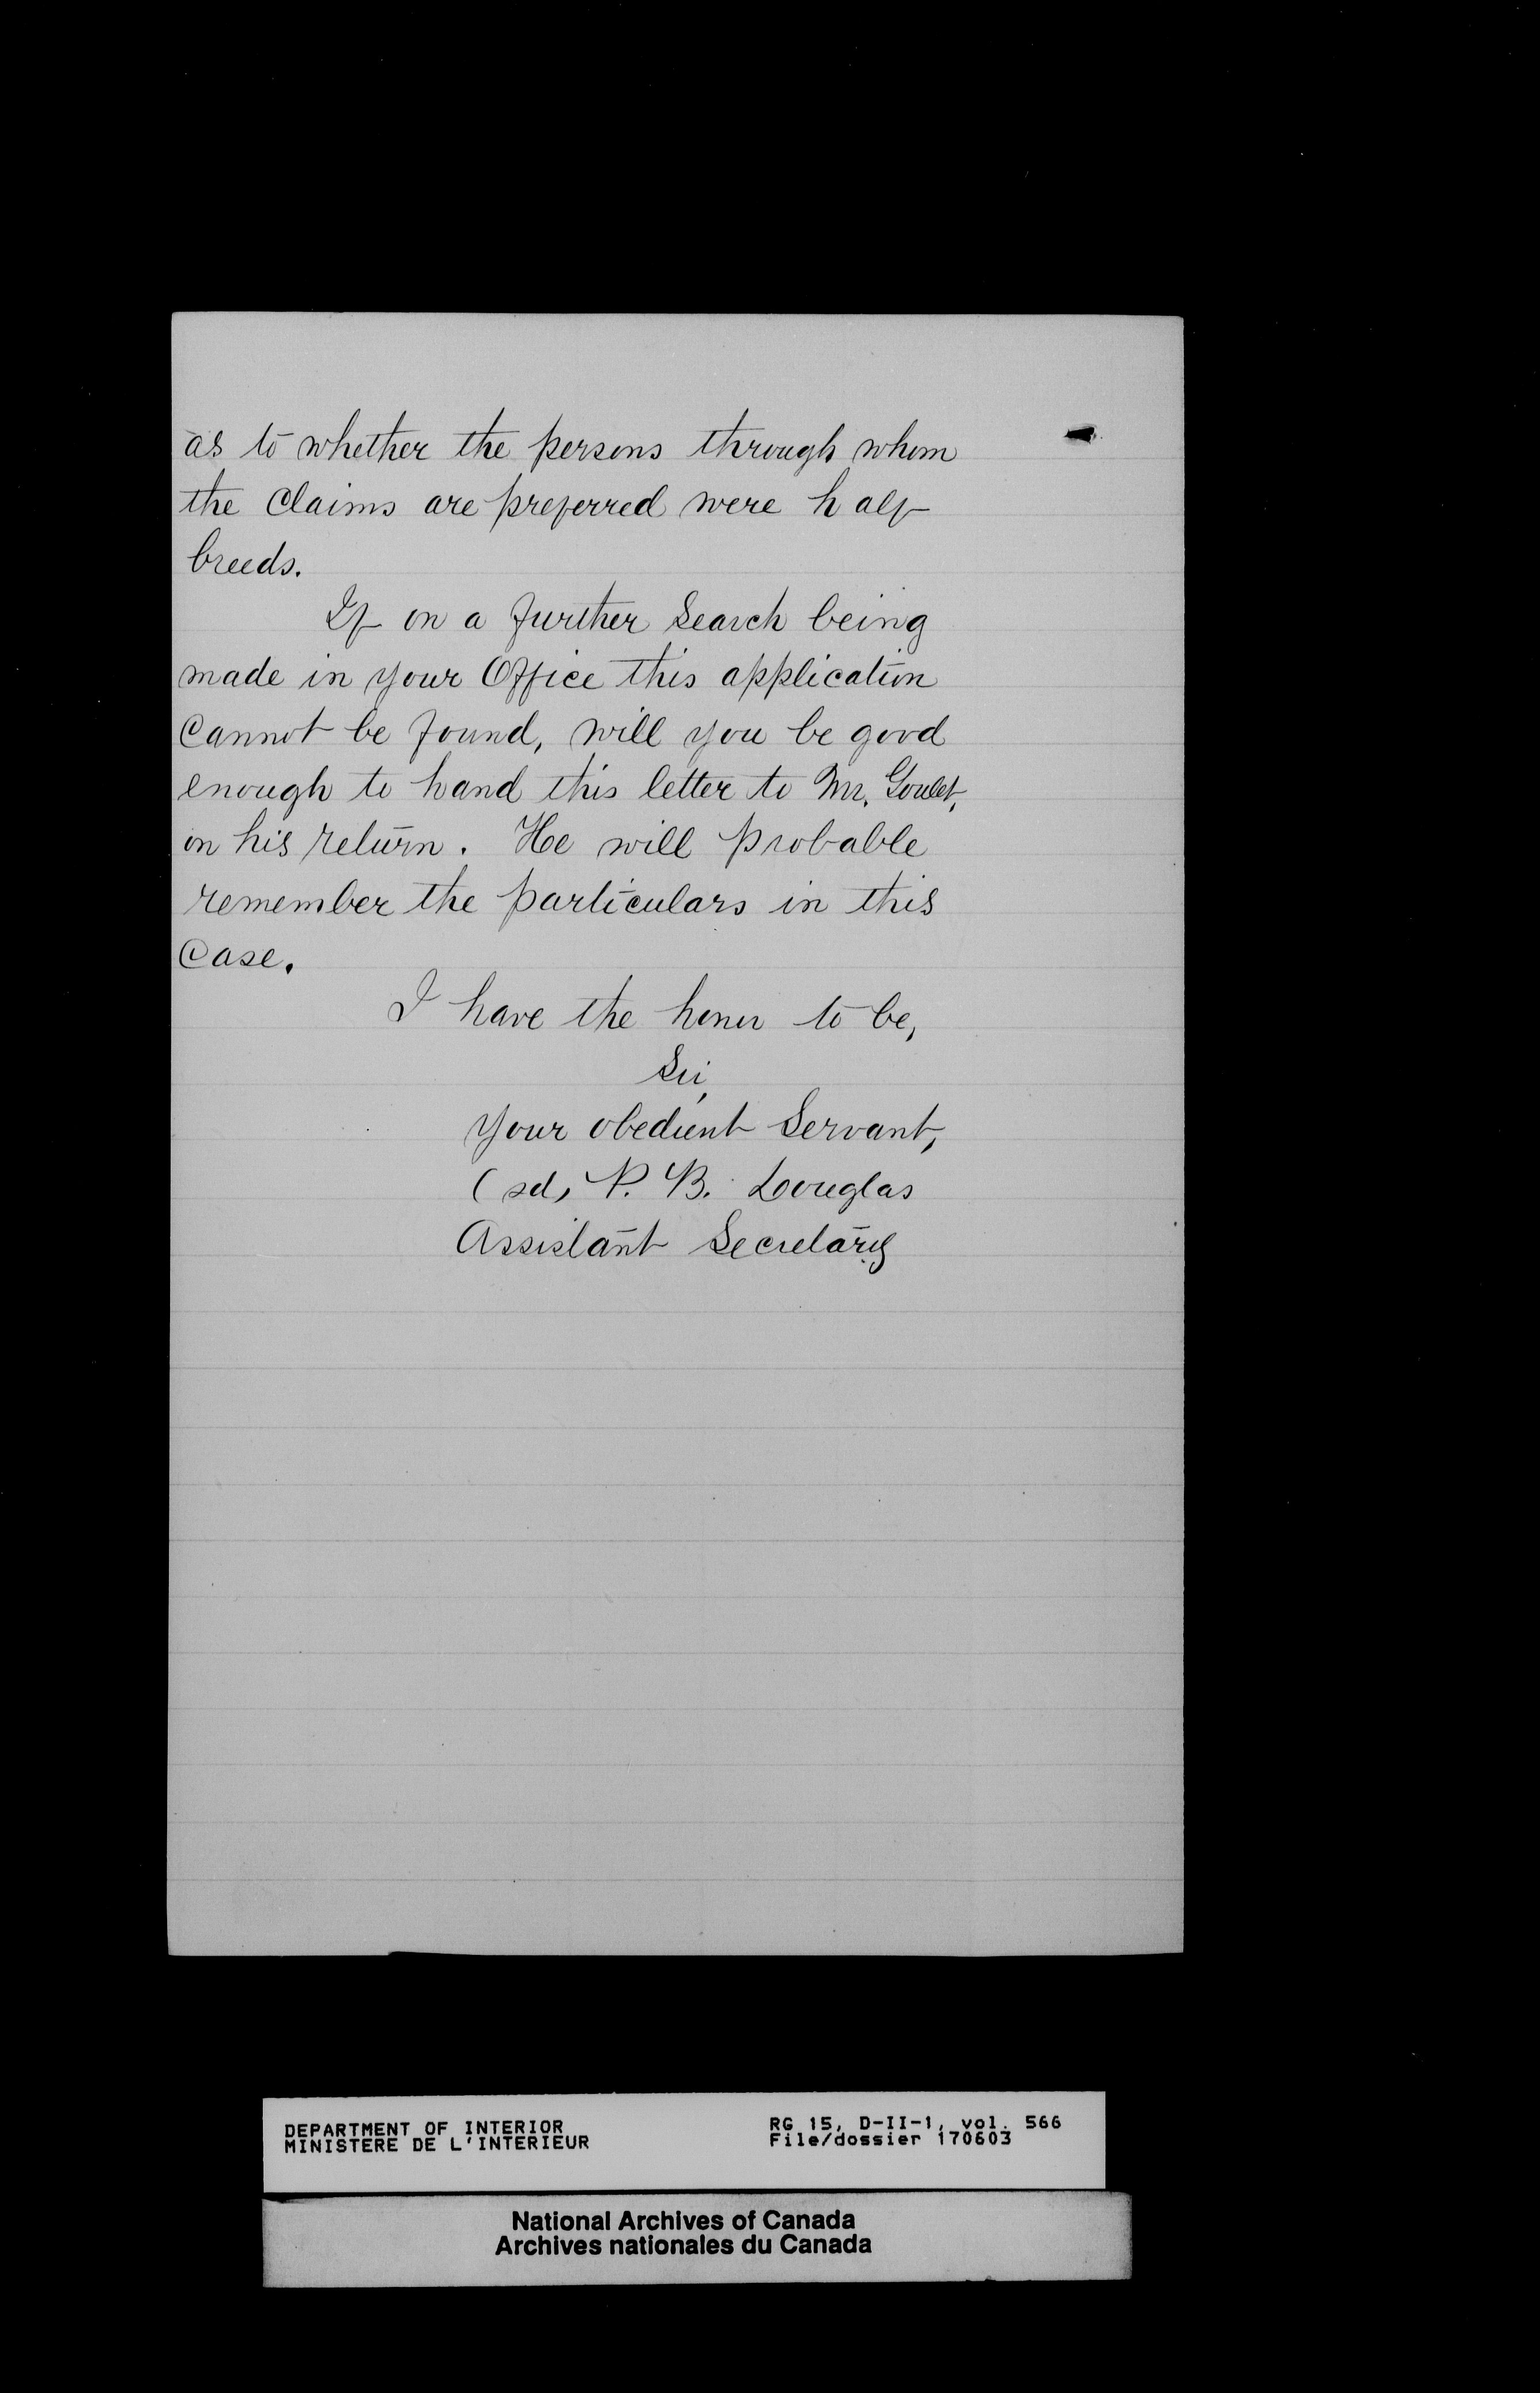 as to whether the persons through whom
the claims are preferred were half
breeds.
If on a further search being
made in your Office this application
cannot be found, will you be good
enough to hand this letter to Mr. Goulet,
on his return. He will probable
remember the particulars in this
case.
I have the honor to be,
Sir,
Your obedient Servant,
(sd, P. B. Douglas
Assistant Secretary
DEPARTMENT OF INTERIOR
MINISTERE DE L'INTERIEUR
RG 15, D-II-1, vol. 566
File/dossier 170603
National Archives of Canada
Archives nationales du Canada